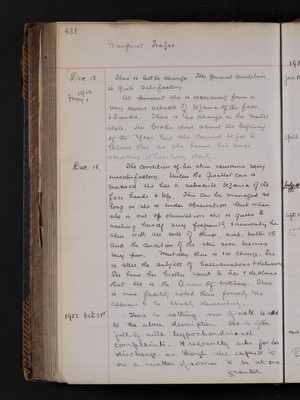 431
Margaret
Dec. 13. There is little change. Her general condition
is quite satisfactory.
1912
May, 1 At present she is recovering from a
very severe attack of Eczema of the face
& hands. There is no change in her mental
state. Her brother died about the beginning
of the Year but she cannot be got to
believe this as she hears his voice
Dec. 18. The condition of her skin remains very
unsatisfactory. Unless the greatest care is
exercised she has a subacute Eczema of the
face hands & legs. This can be managed as
long as she is under observation but when
she is out of observation she is given to
washing herself very frequently & smearing her
skin with all sorts of things soap, butter etc
and the condition of the skin soon becomes
very poor. Mentally there is no change. She
is still the subject of hallucinations & delusions
She hears her brother speak to her & declares
that she is the Queen of Witchery. There
is more facility noted than formerly, she
appears to be slowly dementing.
1913. Oct. 21st There is nothing new of note to add
to the above description. She is often
full of wild hypochondriacal
complaints. Frequently asks for her
discharge as though she expects it
as a matter of course to be at once
granted.